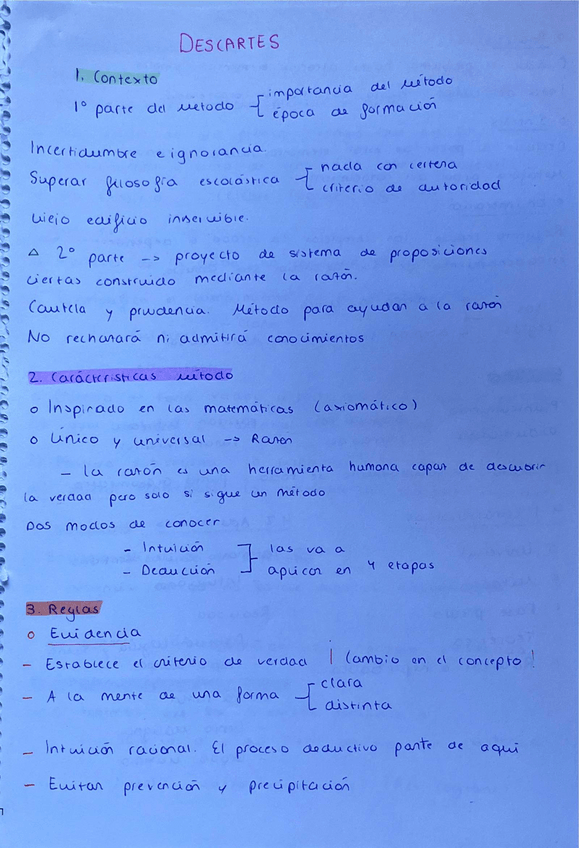 DESCARTES
1. Contexto
1º parte del método { importancia del método
época de formación
Incertidumbre e ignorancia
Superar filosofía escolástica { nada con certeza
criterio de autoridad
Viejo edificio inservible.
△ 2º parte -> proyecto de sistema de proposiciones
ciertas construido mediante la razón.
Cautela y prudencia. Método para ayudar a la razón
No rechazará ni admitirá conocimientos
2. Carácteristicas método
o Inspirado en las matemáticas (axiomático)
o Único y universal -> Razón
- La razón es una herramienta humana capaz de descubrir
la verdad pero solo si sigue un método
Dos modos de conocer
- Intuición } las va a
- Deducción } aplicar en 4 etapas
3. Reglas
o Evidencia
- Establece el criterio de verdad | (ambio en el concepto!
- A la mente de una forma { clara
distinta
- Intuición racional. El proceso deductivo parte de aquí
- Evitar prevención y precipitación